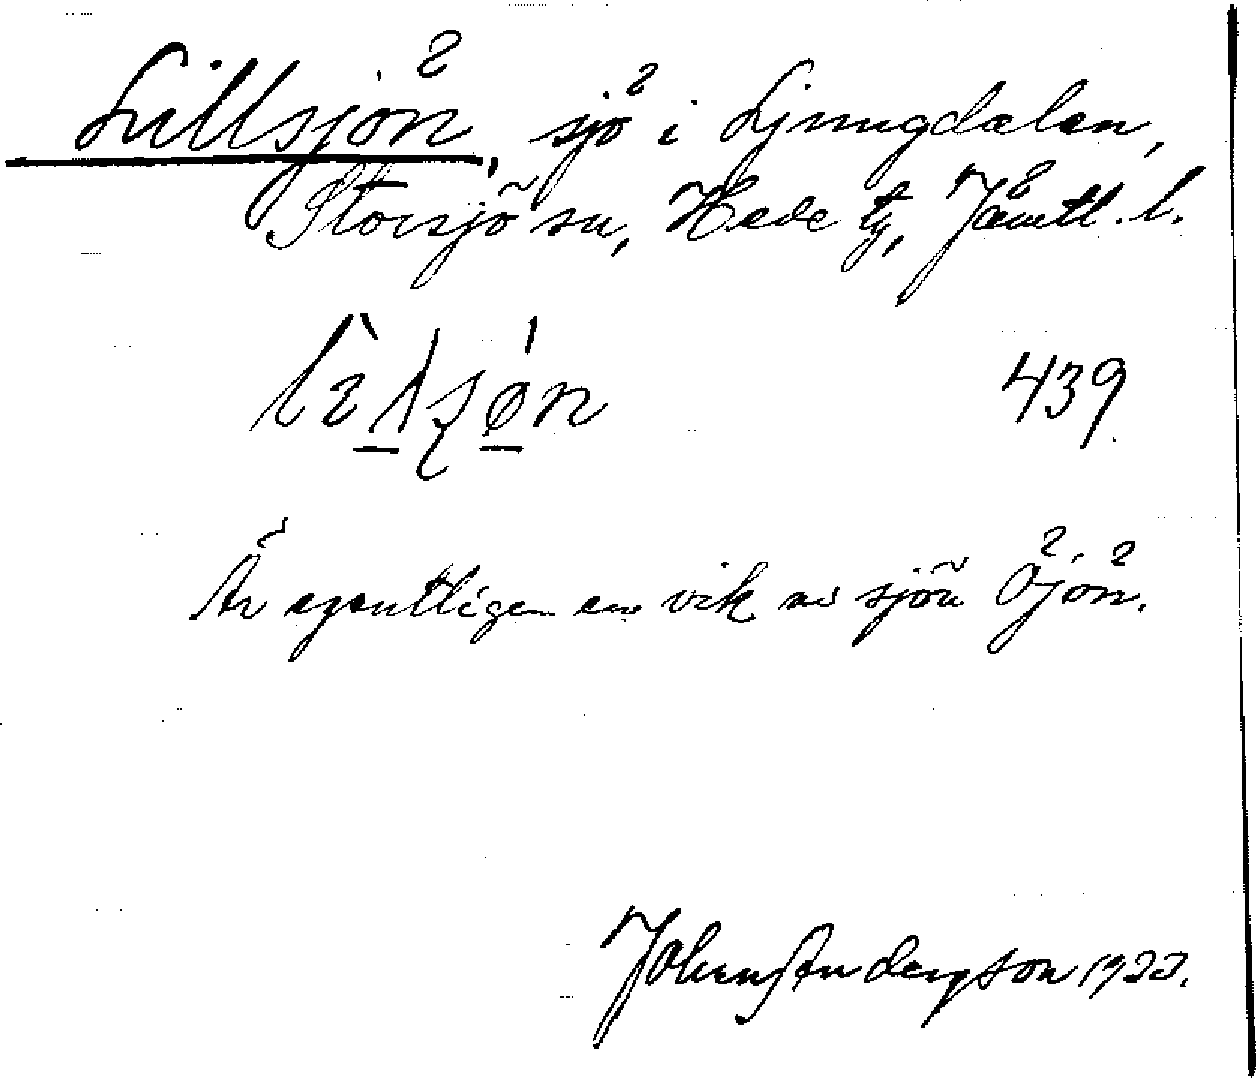 Lillsjön, sjö i Ljungdalen,
Storsjö sn, Hede tg, Jämtl. l.
439
Är egentligen en vik av sjön Öjön.
Johan Anderson 1923.